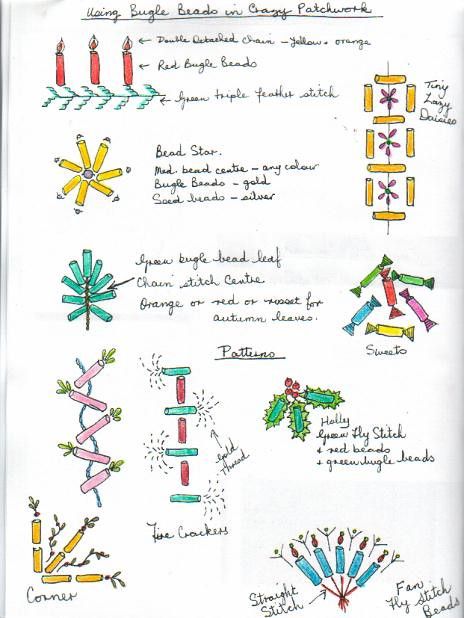 Using Bugle Beads in Crazy Patchwork
Double Detached Chain - Yellow + orange
Red Bugle Beads
Green triple feather stitch
Tiny
Lazy
Daisies
Bead Star.
Med. bead centre - any colour
Bugle Beads - gold
Seed beads - silver
Green bugle bead leaf
Chain stitch Centre
Orange or red or russet for
autumn leaves.
Sweets
Patterns
Gold
thread
Holly
Green Fly Stitch
+ red beads
+ green bugle beads
Fire Crackers
Corner
Straight
Stitch
Fan
Fly Stitch
Beads